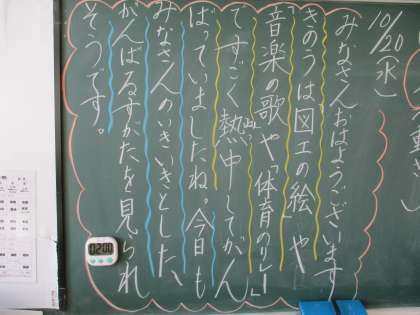 10/20(水)
みなさんおはようございます
きのうは図工の絵」や
「音楽の歌や「体育のリレー」
ですごく熱中してがん
ばっていましたね。今日も
みなさんのいきいきとした、
がんばるすがたを見られ
そうです。
02:00